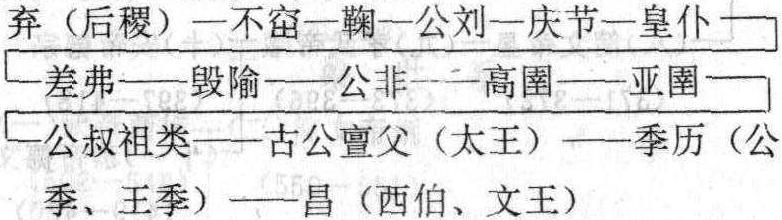 弃（后稷）—不窋—鞠—公刘—庆节—皇仆—
差弗——毁隃——公非——高圉——亚圉—
公叔祖类——古公亶父（太王）——季历（公
季、王季）——昌（西伯、文王）